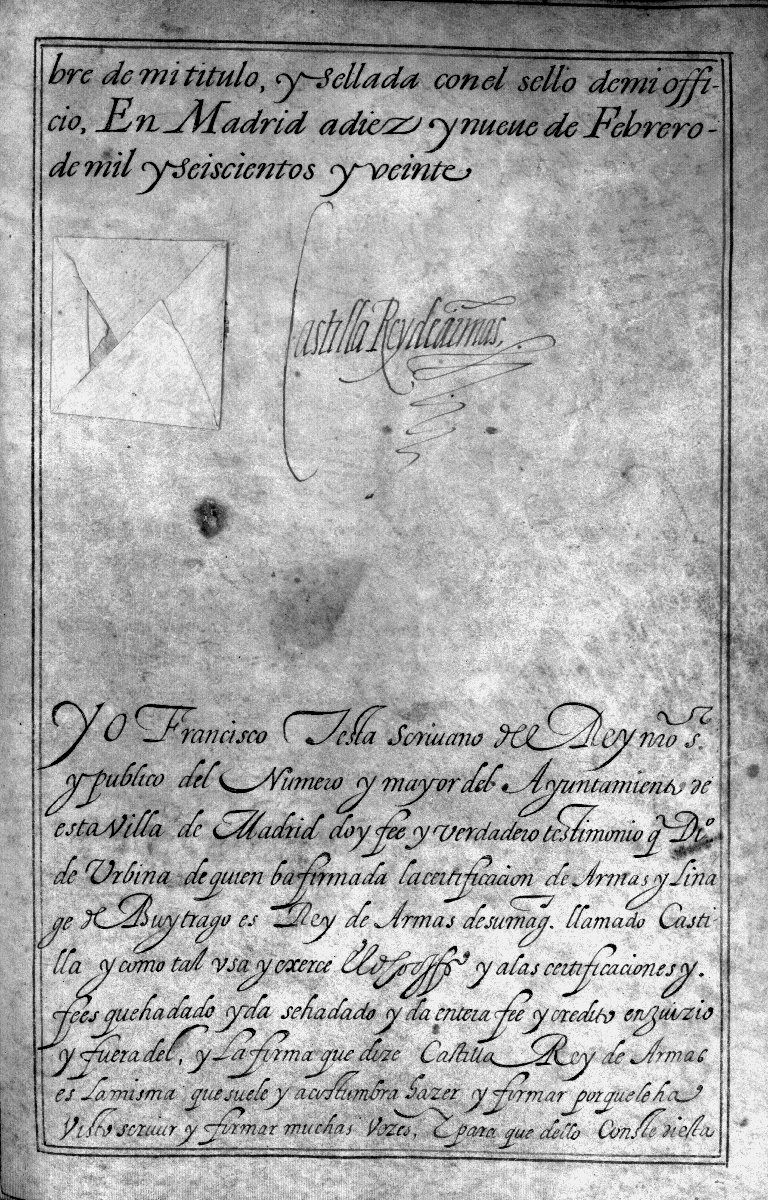 bre de mi titulo, y sellada con el sello de mi offi-
cio, En Madrid a diez y nueue de Febrero-
de mil y seiscientos y veinte
Castilla Rey de armas,
Yo Francisco Testa scriuano del Rey nro s.r
y publico del Numero y mayor del Ayuntamiento de
esta Villa de Madrid doy fee y verdadero testimonio q̃ D.o
de Urbina de quien ba firmada la certificacion de Armas y Lina
ge de Buytrago es Rey de Armas de su mag. llamado Casti-
lla y como tal vsa y exerce y a las certificaciones y.
fees que ha dado y da se ha dado y da entera fee y credito en Juizio
y fuera del, y La firma que dize Castilla Rey de Armas
es La misma que suele y acostumbra hazer y firmar porque le ha
Visto scriuir y firmar muchas Vezes, Y para que dello Conste di esta